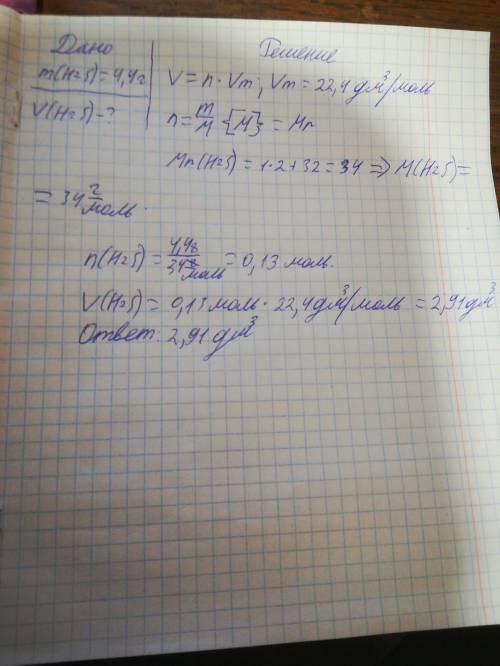 Дано
Решение
m(H2S)=4,4г
V=n·Vm; Vm=22,4 дм³/моль
V(H2S)-?
n=m/M {M}=Mr
Mr(H2S)=1·2+32=34 ⇒ M(H2S)=
=34 г/моль.
n(H2S)=4,4г/34г/моль=0,13 моль.
V(H2S)=0,13моль·22,4дм³/моль=2,91дм³
Ответ: 2,91 дм³